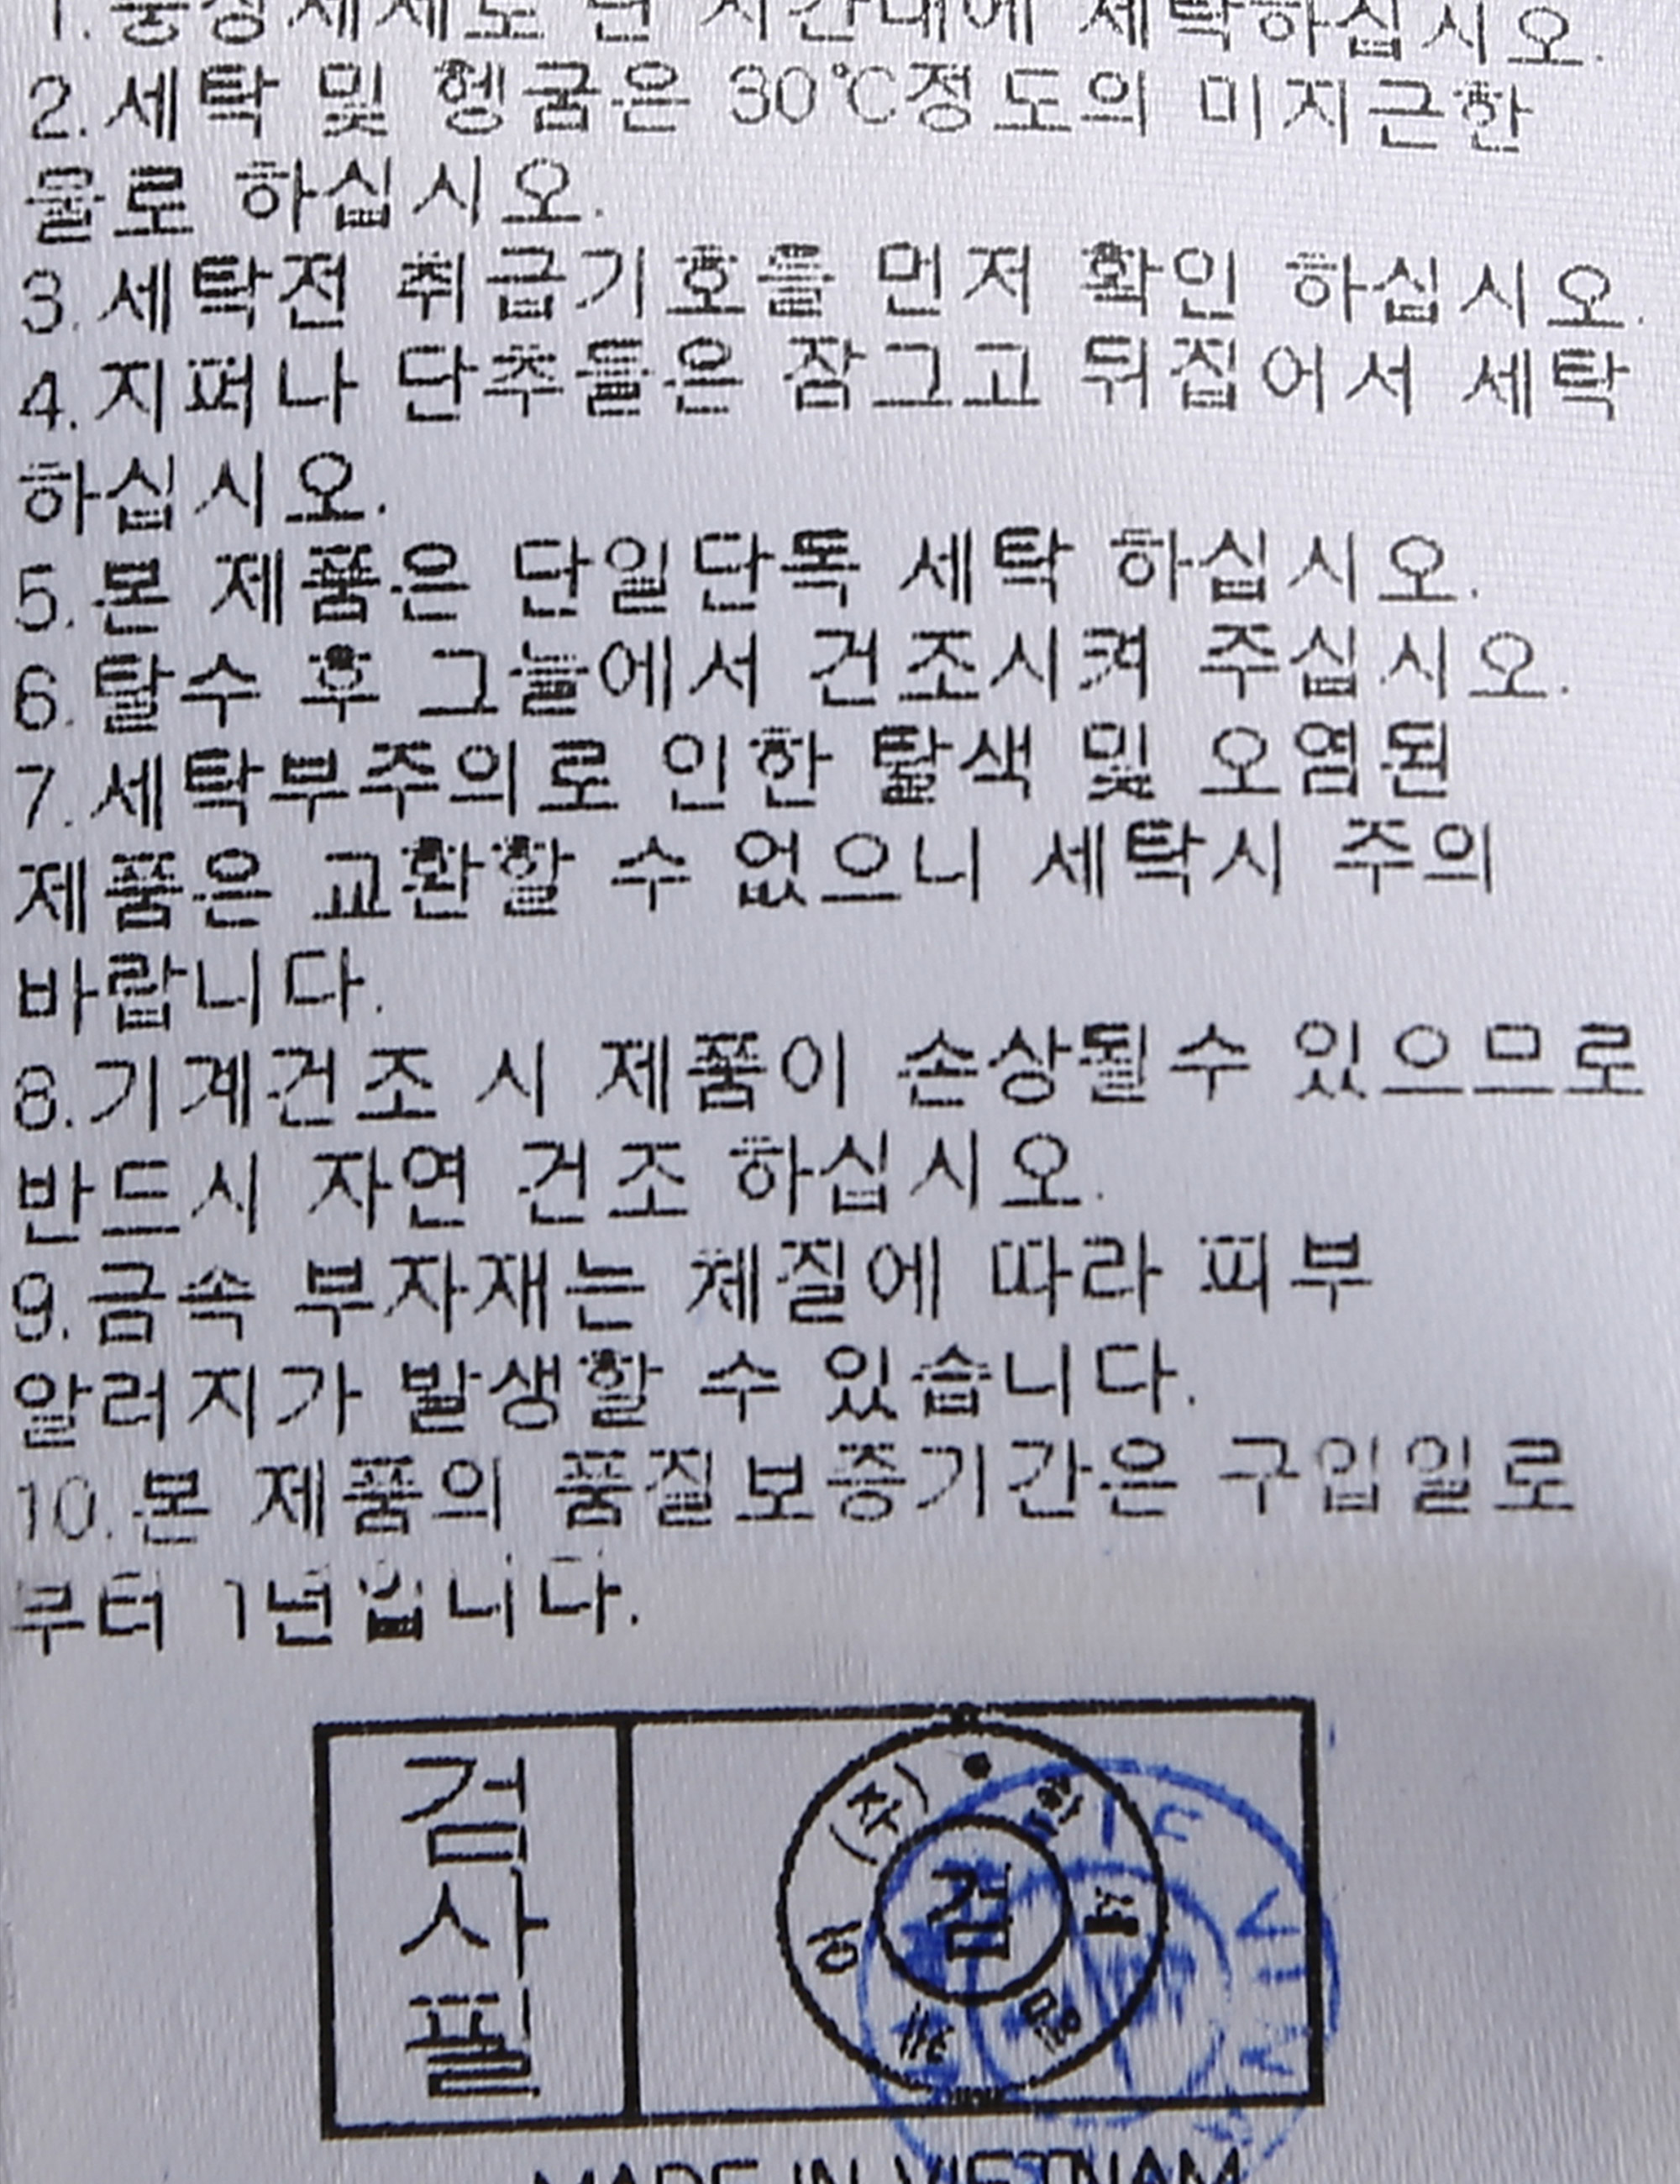 1.중성세제로 단 시간내에 세탁하십시오.
2.세탁 및 헹굼은 30℃정도의 미지근한
물로 하십시오.
3.세탁전 취급기호를 먼저 확인 하십시오.
4.지퍼나 단추들은 잠그고 뒤집어서 세탁
하십시오.
5.본 제품은 단일단독 세탁 하십시오.
6.탈수 후 그늘에서 건조시켜 주십시오.
7.세탁부주의로 인한 탈색 및 오염된
제품은 교환할 수 없으니 세탁시 주의
바랍니다.
8.기계건조 시 제품이 손상될수 있으므로
반드시 자연 건조 하십시오.
9.금속 부자재는 체질에 따라 피부
알러지가 발생할 수 있습니다.
10.본 제품의 품질보증기간은 구입일로
부터 1년입니다.
검사필
(주)
검
MADE IN VIETNAM